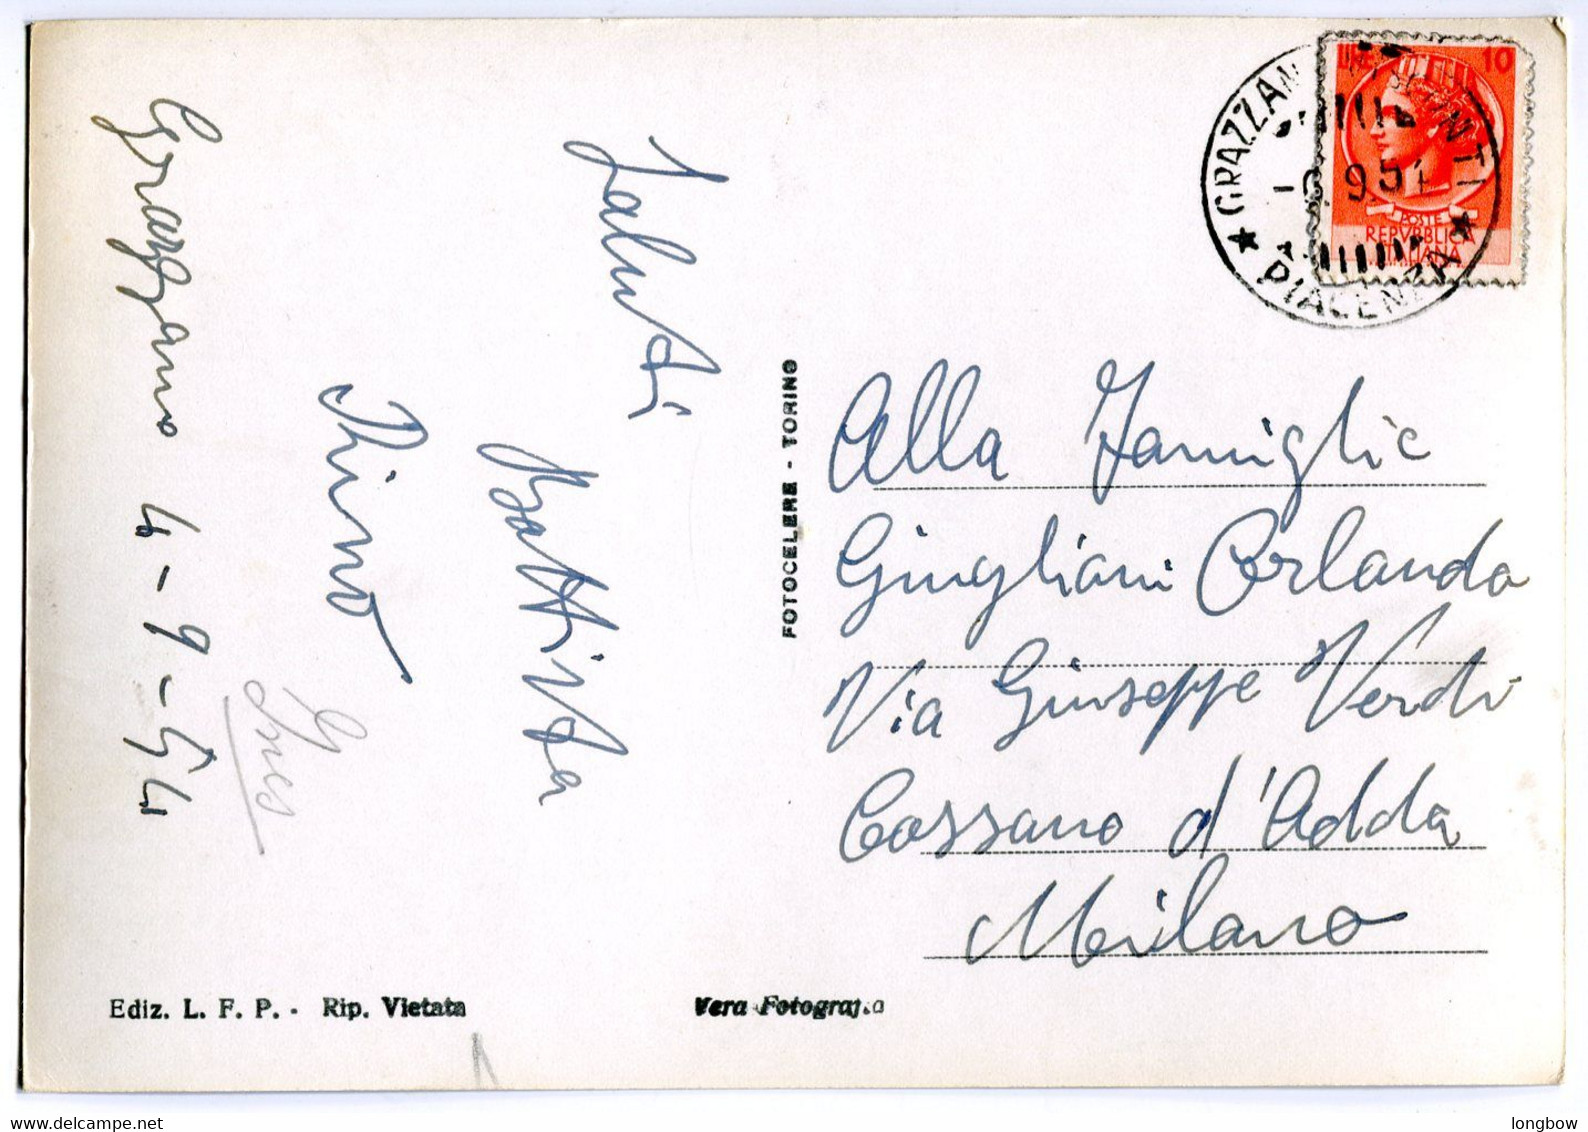 Grazzano 4-9-54
Saluti
Battista
Pino
Ines
FOTOCELERE - TORINO
LIRE 10
POSTE
REPVBBLICA
ITALIANA
GRAZZANO VISCONTI
9.54
★ PIACENZA ★
Alla Famiglia
Giugliani Orlando
Via Giuseppe Verdi
Cassano d'Adda
Milano
Ediz. L. F. P. - Rip. Vietata
Vera Fotografia
www.delcampe.net
longbow